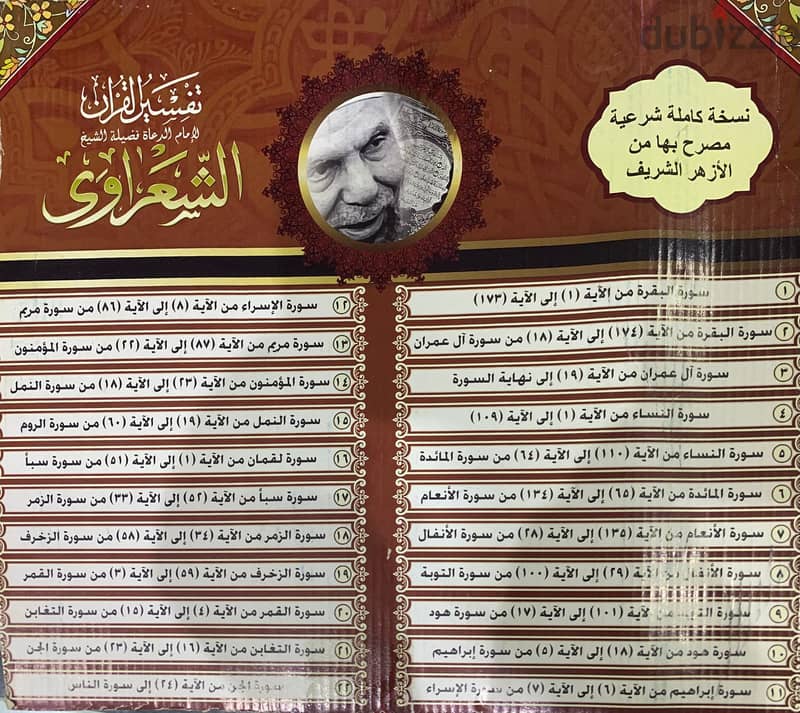 dubizzle
تفسير القرآن
لإمام الدعاة فضيلة الشيخ
الشعراوى
نسخة كاملة شرعية
مصرح بها من
الأزهر الشريف
١ سورة البقرة من الآية (١) إلى الآية (١٧٣)
٢ سورة البقرة من الآية (١٧٤) إلى الآية (١٨) من سورة آل عمران
٣ سورة آل عمران من الآية (١٩) إلى نهاية السورة
٤ سورة النساء من الآية (١) إلى الآية (١٠٩)
٥ سورة النساء من الآية (١١٠) إلى الآية (٦٤) من سورة المائدة
٦ سورة المائدة من الآية (٦٥) إلى الآية (١٣٤) من سورة الأنعام
٧ سورة الأنعام من الآية (١٣٥) إلى الآية (٢٨) من سورة الأنفال
٨ سورة الأنفال من الآية (٢٩) إلى الآية (١٠٠) من سورة التوبة
٩ سورة التوبة من الآية (١٠١) إلى الآية (١٧) من سورة هود
١٠ سورة هود من الآية (١٨) إلى الآية (٥) من سورة إبراهيم
١١ سورة إبراهيم من الآية (٦) إلى الآية (٧) من سورة الإسراء
١٢ سورة الإسراء من الآية (٨) إلى الآية (٨٦) من سورة مريم
١٣ سورة مريم من الآية (٨٧) إلى الآية (٢٢) من سورة المؤمنون
١٤ سورة المؤمنون من الآية (٢٣) إلى الآية (١٨) من سورة النمل
١٥ سورة النمل من الآية (١٩) إلى الآية (٦٠) من سورة الروم
١٦ سورة لقمان من الآية (١) إلى الآية (٥١) من سورة سبأ
١٧ سورة سبأ من الآية (٥٢) إلى الآية (٣٣) من سورة الزمر
١٨ سورة الزمر من الآية (٣٤) إلى الآية (٥٨) من سورة الزخرف
١٩ سورة الزخرف من الآية (٥٩) إلى الآية (٣) من سورة القمر
٢٠ سورة القمر من الآية (٤) إلى الآية (١٥) من سورة التغابن
٢١ سورة التغابن من الآية (١٦) إلى الآية (٢٣) من سورة الجن
٢٢ سورة الجن من الآية (٢٤) إلى سورة الناس